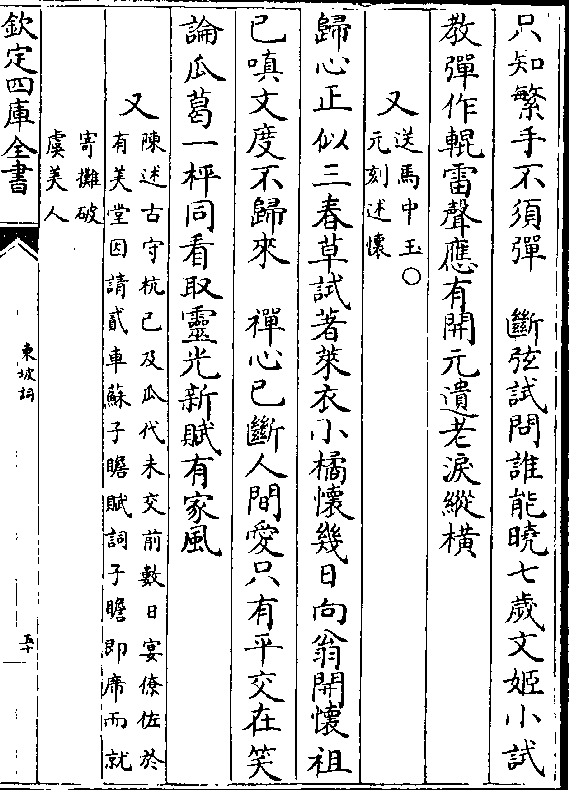 只知繁手不須彈　斷弦試問誰能曉七歲文姬小試
教彈作輥雷聲應有開元遺老淚縱橫
又送馬中玉○
元刻述懷
歸心正似三春草試著萊衣小橘懷幾日向翁開懷祖
已嗔文度不歸來　禪心已斷人間愛只有平交在笑
論瓜葛一枰同看取靈光新賦有家風
又陳述古守杭已及瓜代未交前數日宴僚佐於
有美堂因請貳車蘇子瞻賦詞子瞻即席而就
寄攤破
虞美人
欽定四庫全書
東坡詞
五十